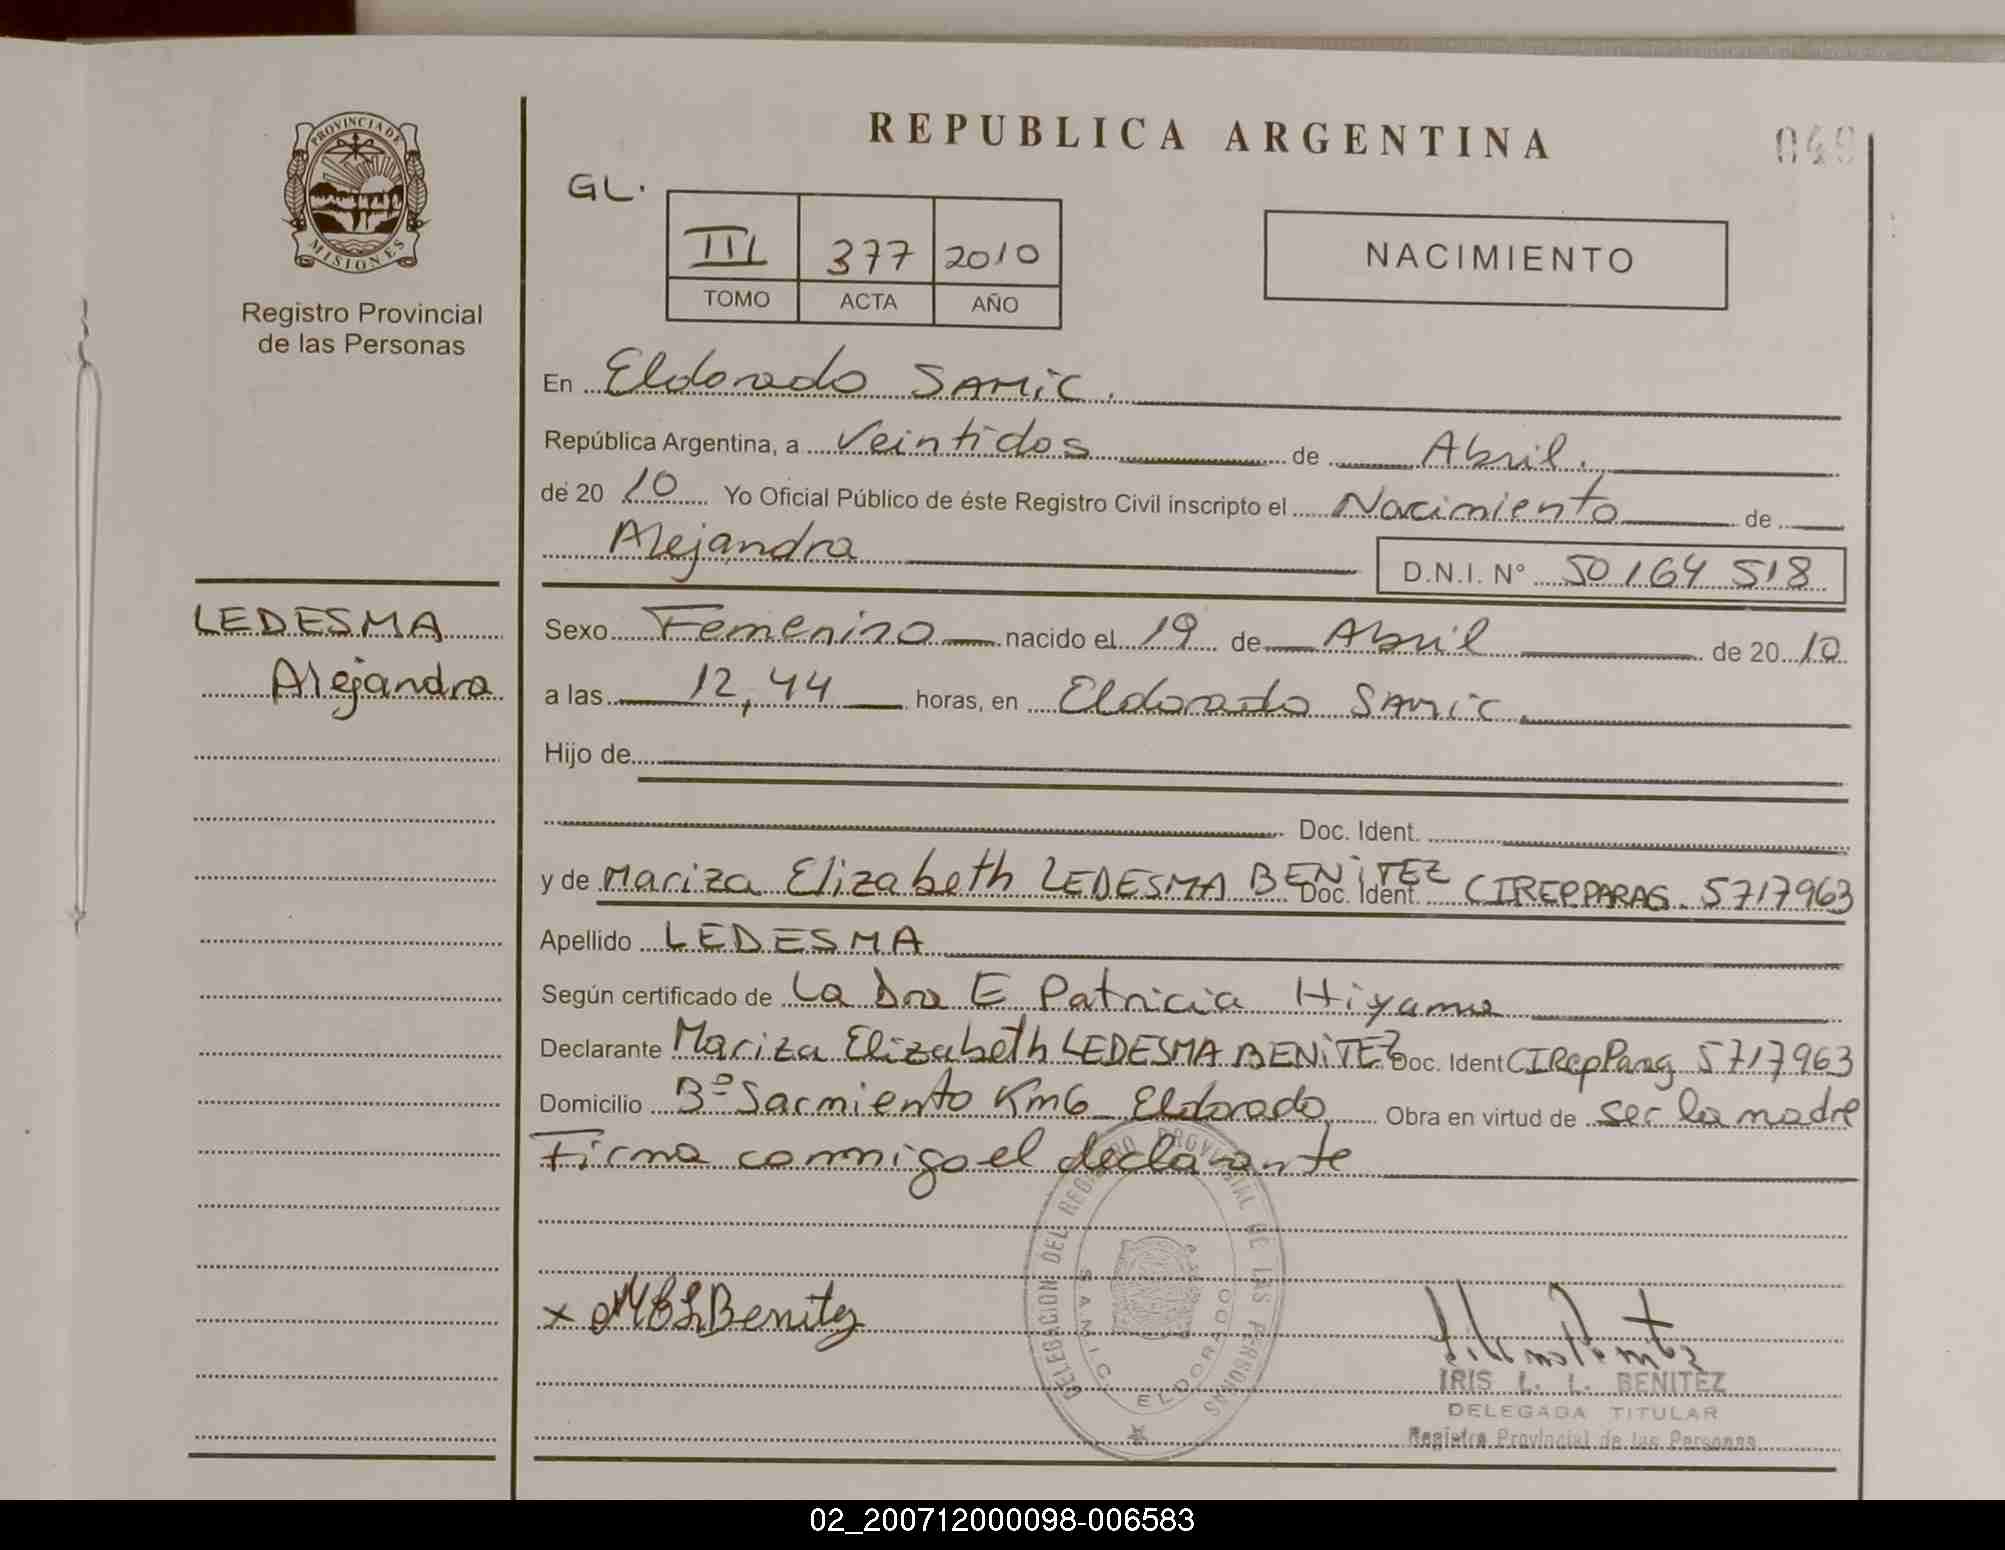 PROVINCIA DE
MISIONES
Registro Provincial
de las Personas
LEDESMA
Alejandra
REPUBLICA ARGENTINA
049
GL.
III 377 2010
TOMO ACTA AÑO
NACIMIENTO
En Eldorado SAMIC.
República Argentina, a Veintidos de Abril.
de 20 10 Yo Oficial Público de éste Registro Civil inscripto el Nacimiento de
Alejandra D.N.I. N° 50 164 518
Sexo Femenino nacido el 19 de Abril de 20 10
a las 12,44 horas, en Eldorado SAMIC
Hijo de
Doc. Ident.
y de Mariza Elizabeth LEDESMA BENiTEZ Doc. Ident. CIREPPARAG. 5717963
Apellido LEDESMA
Según certificado de La Dra E Patricia Hiyama
Declarante Mariza Elizabeth LEDESMA BENiTEZ Doc. Ident CIRepParg 5717963
Domicilio Bº Sarmiento Km6 Eldorado Obra en virtud de ser la madre
Firma conmigo el declarante
DELEGACION DEL REGISTRO PROVINCIAL DE LAS PERSONAS
S.A.M.I.C. ELDORADO
x MELBenitez
IRIS L. L. BENITEZ
DELEGADA TITULAR
Registro Provincial de las Personas
02_200712000098-006583